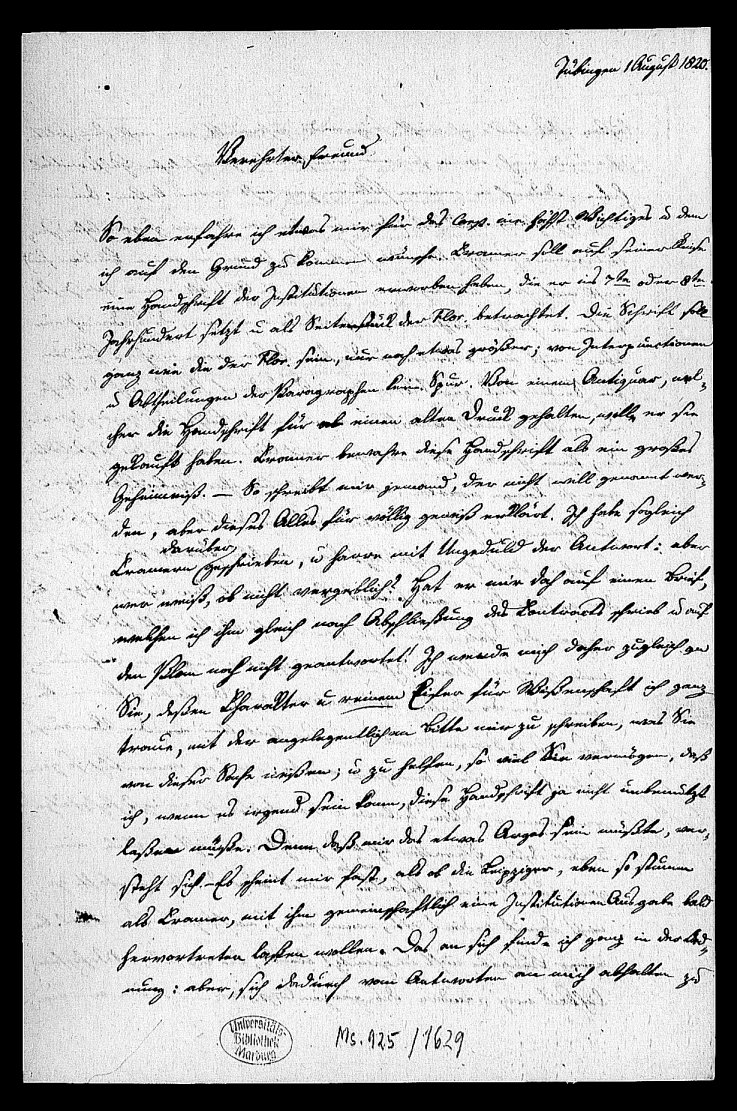 Tübingen 1 August 1820.
Verehrter Freund
So eben erfahre ich etwas mir für das Corp. iur. höchst Wichtiges u dem
ich auf den Grund zu kommen wünsche. Cramer soll auf seiner Reise
eine Handschrift der Institutionen erworben haben, die er ins 7te oder 8te
Jahrhundert setzt u als Seitenstück der Flor. betrachtet. Die Schrift soll
ganz wie die der Flor. sein, nur noch etwas größer; von Interpunctionen
u Abtheilungen der Paragraphen keine Spur. Von einem Antiquar, wel-
cher die Handschrift für einen alten Druck gehalten, wolle er sie
gekauft haben. Cramer bewahre diese Handschrift als ein großes
Geheimniß. — So schreibt mir jemand, der nicht will genannt wer-
den, aber dieses Alles für völlig gewiß erklärt. Ich habe sogleich
darüber
Cramern geschrieben, u harre mit Ungeduld der Antwort: aber
wer weiß, ob nicht vergeblich? Hat er mir doch auf einen Brief,
welchen ich ihm gleich nach Abschließung des Contracts schrieb u auf
den Plan noch nicht geantwortet! Ich wende mich daher zugleich an
Sie, deßen Charakter u reinem Eifer für Wißenschaft ich ganz
traue, mit der angelegentlichen Bitte mir zu schreiben, was Sie
von dieser Sache wißen; u zu helfen, so viel Sie vermögen, daß
ich, wenn es irgend sein kann, diese Handschrift ja nicht unbenützt
laßen müße. Denn daß mir das etwas Arges sein müßte, ver-
steht sich. – Es scheint mir fast, als ob die Leipziger, eben so stumm
als Cramer, mit ihm gemeinschaftlich eine Institutionen Ausgabe bald
hervortreten laßen wollen. Das an sich finde ich ganz in der Ord-
nung: aber, sich dadurch vom Antworten an mich abhalten zu
Universitäts-
Bibliothek
Marburg
Ms. 925/1629